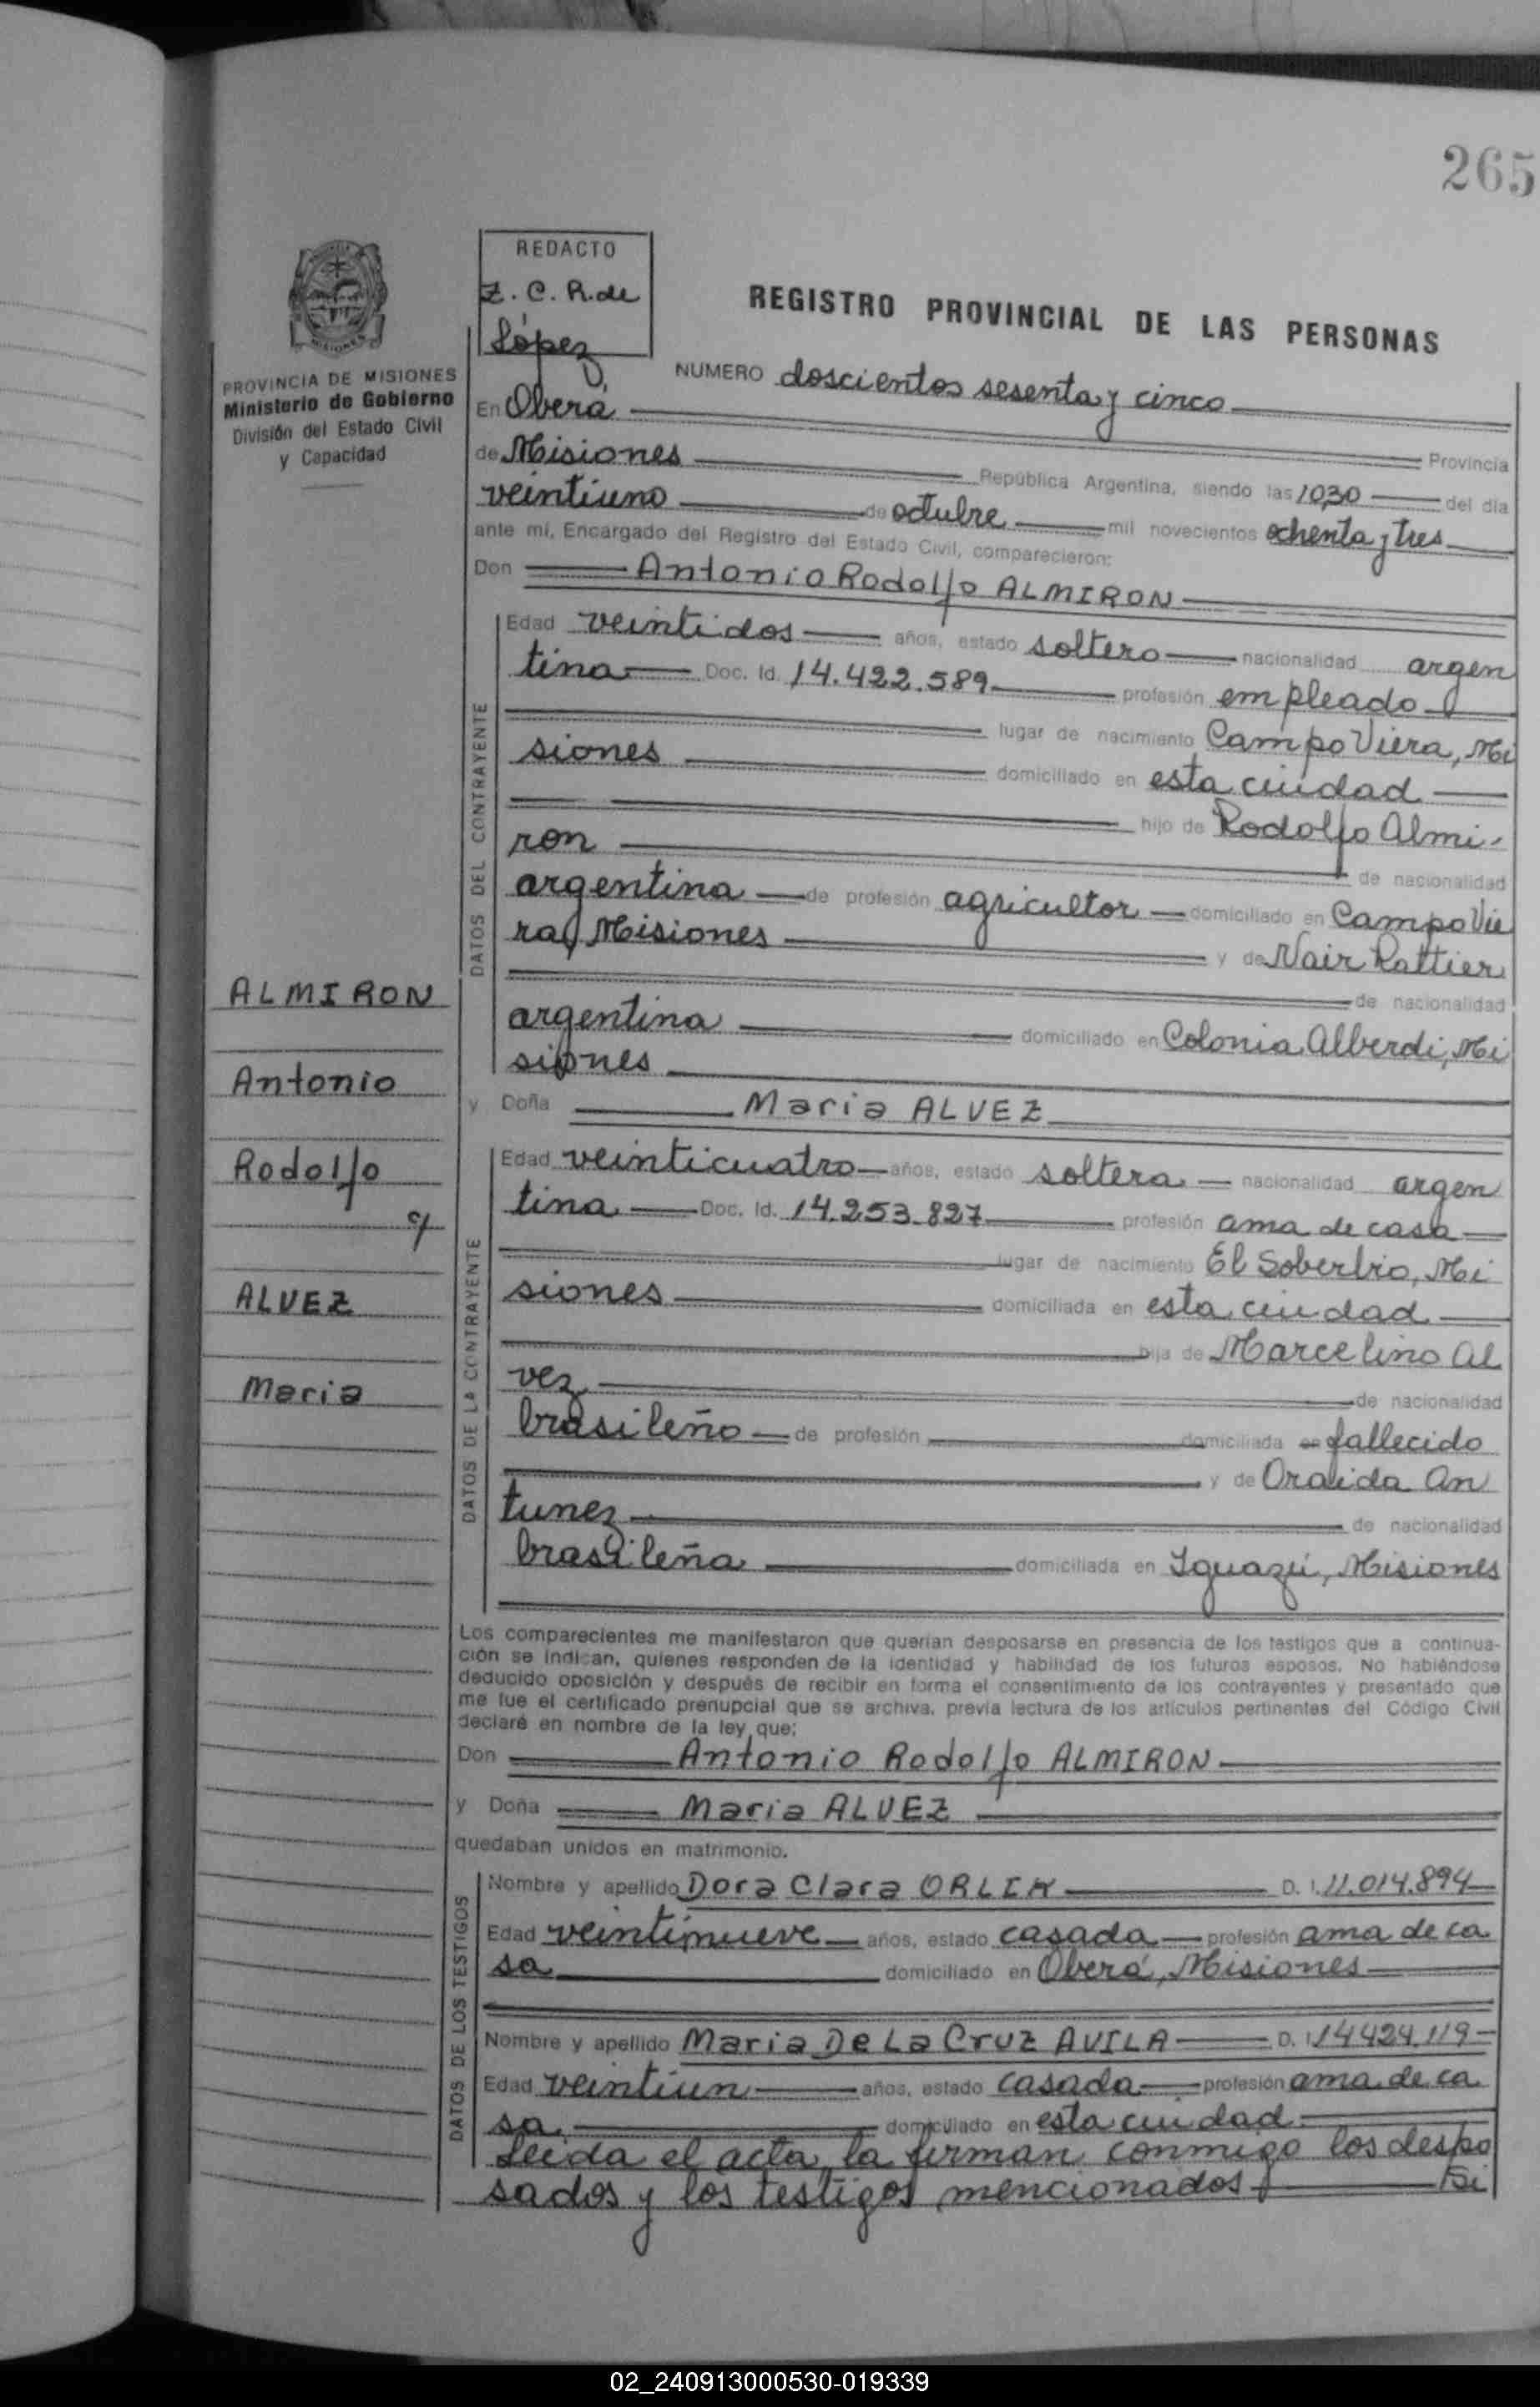 265
REDACTO
Z. C. R. de
López
REGISTRO PROVINCIAL DE LAS PERSONAS
PROVINCIA DE MISIONES
Ministerio de Gobierno
División del Estado Civil
y Capacidad
NUMERO doscientos sesenta y cinco
En Oberá
Provincia
de Misiones República Argentina, siendo las 10,30 del día
veintiuno de octubre mil novecientos ochenta y tres
ante mí, Encargado del Registro del Estado Civil, comparecieron:
Don Antonio Rodolfo ALMIRON
DATOS DEL CONTRAYENTE
Edad veintidos años, estado soltero nacionalidad argen
tina Doc. Id. 14.422.589 profesión empleado
lugar de nacimiento Campo Viera, Mi
siones domiciliado en esta ciudad
hijo de Rodolfo Almi-
ron
de nacionalidad
argentina de profesión agricultor domiciliado en Campo Vie
ra, Misiones y de Nair Rattier
de nacionalidad
argentina domiciliado en Colonia Alberdi, Mi
siones
y Doña Maria ALVEZ
ALMIRON
Antonio
Rodolfo
c/
ALVEZ
Maria
DATOS DE LA CONTRAYENTE
Edad veinticuatro años, estado soltera nacionalidad argen
tina Doc. Id. 14.253.827 profesión ama de casa
lugar de nacimiento El Soberbio, Mi
siones domiciliada en esta ciudad
hija de Marcelino Al
vez
de nacionalidad
brasileño de profesión domiciliada en fallecido
y de Oraida An
tunez
de nacionalidad
brasileña domiciliada en Iguazú, Misiones
Los comparecientes me manifestaron que querían desposarse en presencia de los testigos que a continua-
ción se indican, quienes responden de la identidad y habilidad de los futuros esposos. No habiéndose
deducido oposición y después de recibir en forma el consentimiento de los contrayentes y presentado que
me fue el certificado prenupcial que se archiva, previa lectura de los artículos pertinentes del Código Civil
declaré en nombre de la ley que:
Don Antonio Rodolfo ALMIRON
y Doña Maria ALVEZ
quedaban unidos en matrimonio.
DATOS DE LOS TESTIGOS
Nombre y apellido Dora Clara ORLIK D. I. 11.014.894
Edad veintinueve años, estado casada profesión ama de ca
sa domiciliado en Oberá, Misiones
Nombre y apellido Maria De La Cruz AVILA D. I. 14424.119
Edad veintiun años, estado casada profesión ama de ca
sa domiciliado en esta ciudad
Leida el acta, la firman conmigo los despo
sados y los testigos mencionados
02_240913000530-019339